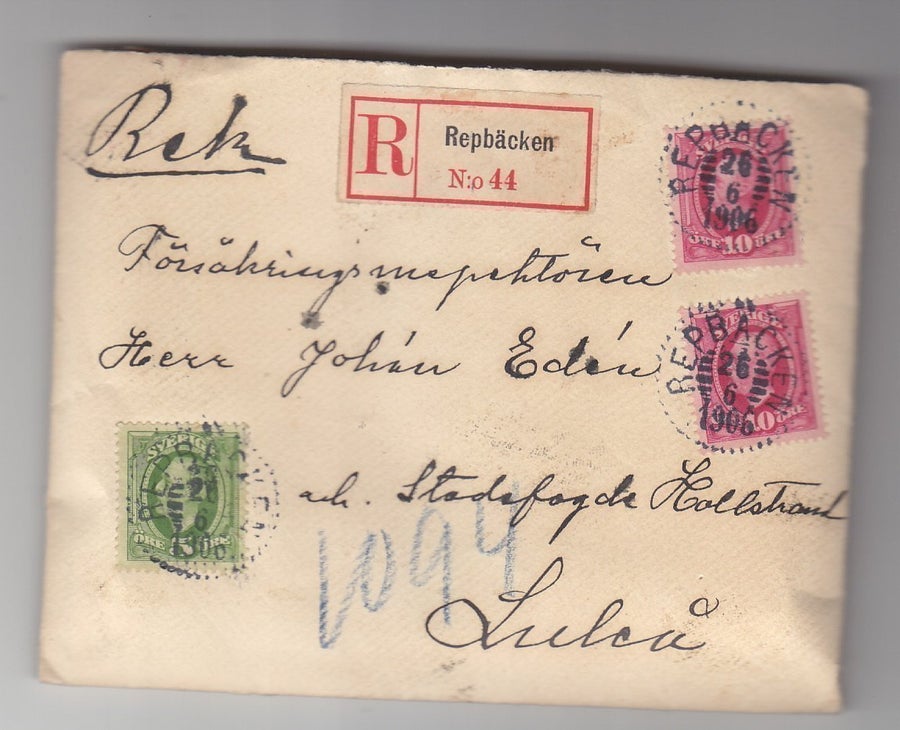 Rek
R
Repbäcken
N:o 44
REPBÄCKEN
26
6
1906
SVERIGE
ÖRE 10 ÖRE
Försäkringsinspektören
Herr Johan Edén
REPBÄCKEN
26
6
1906
SVERIGE
10 ÖRE
SVERIGE
REPBÄCKEN
26
6
1906
ÖRE 5 ÖRE
adr. Stadsfogde Hollstrand
1094
Luleå